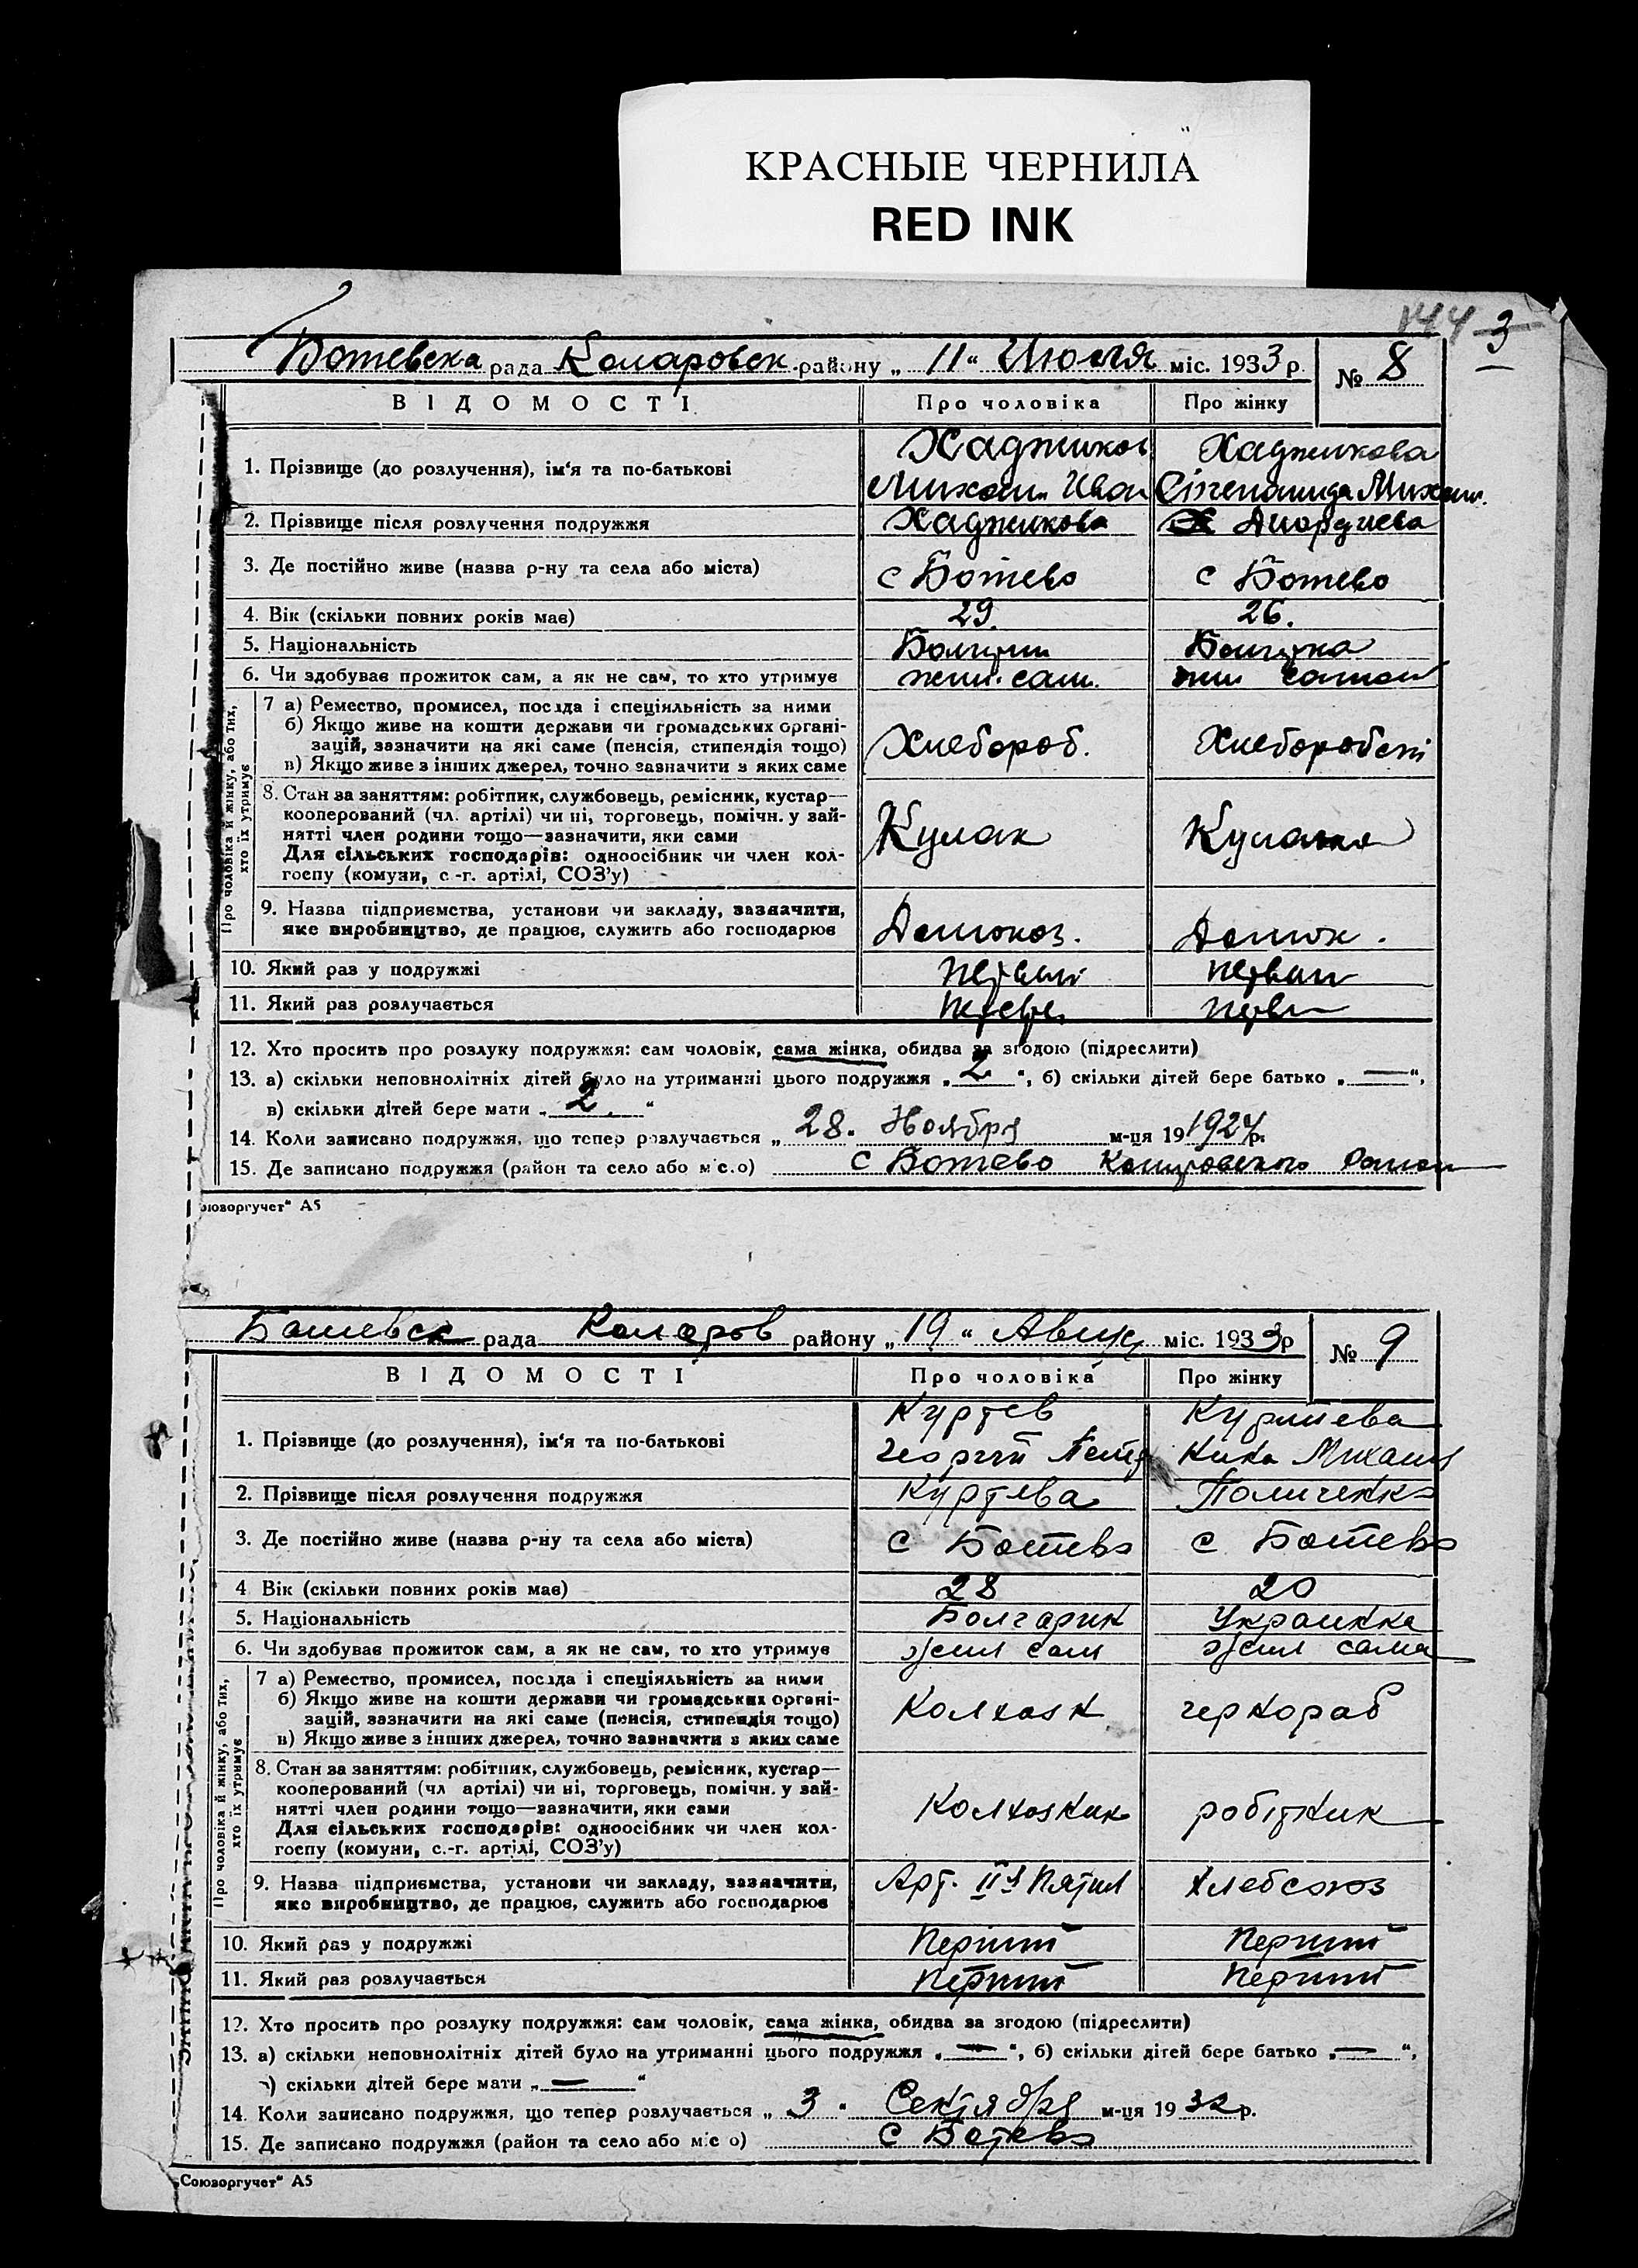 КРАСНЫЕ ЧЕРНИЛА
RED INK
144 3
Ботевска рада Коларовск. району „ 11 “ Июля міс. 1933 р. № 8
ВІДОМОСТІ Про чоловіка Про жінку
1. Прізвище (до розлучення), ім‘я та по-батькові
Хаджиков Хаджикова
Михаил Иван Михаил.
2. Прізвище після розлучення подружжя Хаджикова
3. Де постійно живе (назва р-ну та села або міста) с Ботево с Ботево
4. Вік (скільки повних років має) 29. 26.
5. Національність Болгарин Болгарка
6. Чи здобуває прожиток сам, а як не сам, то хто утримує
Про чоловіка й жінку, або тих, хто їх утримує
7 а) Ремество, промисел, посада і спеціяльність за ними
б) Якщо живе на кошти держави чи громадських органі-
зацій, зазначити на які саме (пенсія, стипендія тощо) Хлебороб.
в) Якщо живе з інших джерел, точно зазначити з яких саме
8. Стан за заняттям: робітник, службовець, ремісник, кустар—
кооперований (чл. артілі) чи ні, торговець, помічн. у зай-
нятті член родини тощо—зазначити, яки сами Кулак
Для сільських господарів: одноосібник чи член кол-
госпу (комуни, с.-г. артілі, СОЗ’у)
9. Назва підприємства, установи чи закладу, зазначити,
яке виробництво, де працює, служить або господарює Домохоз. Домох.
10. Який раз у подружжі первый первый
11. Який раз розлучається
12. Хто просить про розлуку подружжя: сам чоловік, сама жінка, обидва за згодою (підреслити)
13. а) скільки неповнолітніх дітей було на утриманні цього подружжя „ 2 “, б) скільки дітей бере батько „ — “,
в) скільки дітей бере мати „ 2. “
14. Коли записано подружжя, що тепер розлучається „ 28. Ноября м-ця 19 1924 р.
15. Де записано подружжя (район та село або місто) с Ботево Коларовского
оюзоргучет“ А5
Ботевск рада Коларов району „ 19 “ Август міс. 1933 р № 9
ВІДОМОСТІ Про чоловіка Про жінку
1. Прізвище (до розлучення), ім‘я та по-батькові
Куртев Куртева
Георгий Петр Кина Михаил
2. Прізвище після розлучення подружжя Куртева
3. Де постійно живе (назва р-ну та села або міста) с Ботево с Ботево
4 Вік (скільки повних років має) 28 20
5. Національність Болгарин Украинка
6. Чи здобуває прожиток сам, а як не сам, то хто утримує жил сам жил сама
Про чоловіка й жінку, або тих, хто їх утримує
7 а) Ремество, промисел, посада і спеціяльність за ними
б) Якщо живе на кошти держави чи громадських органі-
зацій, зазначити на які саме (пенсія, стипендія тощо) Колхозн чернораб
в) Якщо живе з інших джерел, точно зазначити з яких саме
8. Стан за заняттям: робітник, службовець, ремісник, кустар—
кооперований (чл артілі) чи ні, торговець, помічн. у зай-
нятті член родини тощо—зазначити, яки сами Колхозник робітник
Для сільських господарів: одноосібник чи член кол-
госпу (комуни, с.-г. артілі, СОЗ’у)
9. Назва підприємства, установи чи закладу, зазначити,
яке виробництво, де працює, служить або господарює Арт. IIя Пятил Хлебсоюз
10. Який раз у подружжі Перший Перший
11. Який раз розлучається Перший Перший
12. Хто просить про розлуку подружжя: сам чоловік, сама жінка, обидва за згодою (підреслити)
13. а) скільки неповнолітніх дітей було на утриманні цього подружжя „ — “, б) скільки дітей бере батько „ — “,
в) скільки дітей бере мати „ — “
14. Коли записано подружжя, що тепер розлучається „ 3 “ Сентября м-ця 19 32 р.
15. Де записано подружжя (район та село або місто) с Ботево
„Союзоргучет“ А5